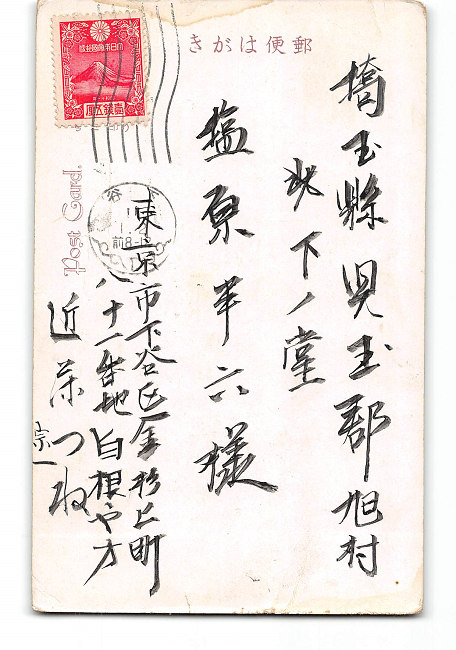 郵便はがき
埼玉縣児玉郡旭村
北下ノ堂
塩原半六様
東京市下谷区金杉上町
八十一番地白根や方
近茶つね
宗一
Post Card.
大日本帝國郵便
壹錢五厘
谷
前8-